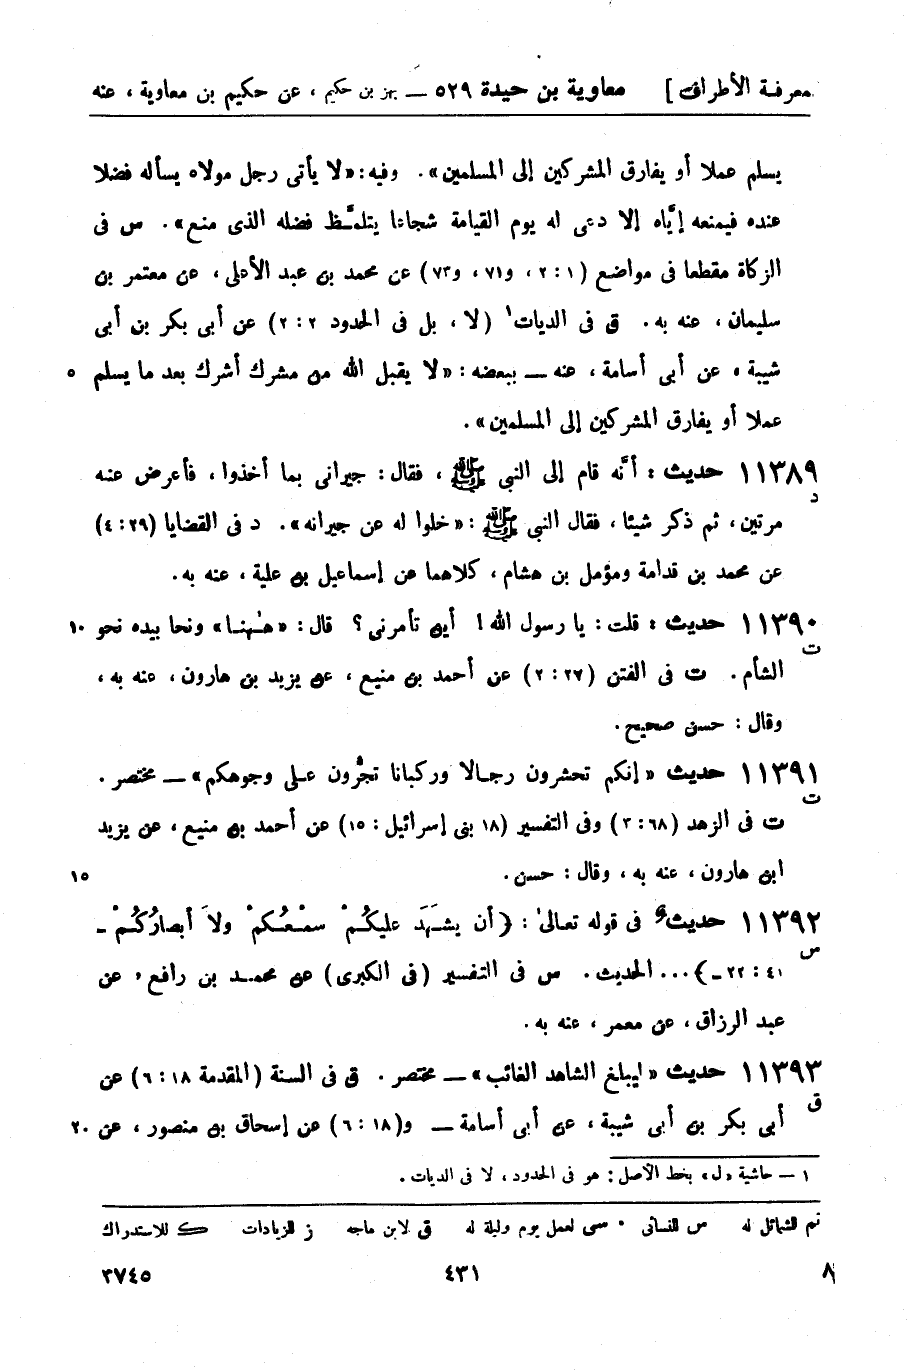 معرفة الأطراف] معاوية بن حيدة ٥٢٩ — بهز بن حكيم ، عن حكيم بن معاوية ، عنه
يسلم عملا أو يفارق المشركين إلى المسلمين» . وفيه : «لا يأتى رجل مولاه يسأله فضلا
عنده فيمنعه إيَّاه إلا دعى له يوم القيامة شجاعا يتلمَّظ فضله الذى منع» . س فى
الزكاة مقطعا فى مواضع (١ : ٢ ، و٧١ ، و٧٣) عن محمد بن عبد الأعلى ، عن معتمر بن
سليمان ، عنه به . ق فى الديات١ (لا ، بل فى الحدود ٢ : ٢) عن أبى بكر بن أبى
شيبة ، عن أبى أسامة ، عنه — ببعضه : «لا يقبل الله من مشرك أشرك بعد ما يسلم ٥
عملا أو يفارق المشركين إلى المسلمين» .
١١٣٨٩ حديث : أنَّه قام إلى النبى ﷺ ، فقال : جيرانى بما أخذوا ، فأعرض عنه
د
مرتين ، ثم ذكر شيئا ، فقال النبى ﷺ : «خلوا له عن جيرانه» . د فى القضايا (٢٩ : ٤)
عن محمد بن قدامة ومؤمل بن هشام ، كلاهما عن إسماعيل بن علية ، عنه به .
١١٣٩٠ حديث : قلت : يا رسول الله ! أين تأمرنى ؟ قال : «هٰهنا» ونحا بيده نحو ١٠
ت
الشأم . ت فى الفتن (٢٧ : ٢) عن أحمد بن منيع ، عن يزيد بن هارون ، عنه به ،
وقال : حسن صحيح .
١١٣٩١ حديث «إنكم تحشرون رجالا وركبانا تجُّرون على وجوهكم» — مختصر .
ت
ت فى الزهد (٦٨ : ٣) وفى التفسير (١٨ بنى إسرائيل : ١٥) عن أحمد بن منيع ، عن يزيد
ابن هارون ، عنه به ، وقال : حسن . ١٥
١١٣٩٢ حديث فى قوله تعالىٰ : {أن يشهَدَ عليكُمْ سمْعُكمْ ولاَ أبصارُكُمْ -
س
٤١ : ٢٢ -} ... الحديث . س فى التفسير (فى الكبرى) عن محمد بن رافع ، عن
عبد الرزاق ، عن معمر ، عنه به .
١١٣٩٣ حديث «ليبلغ الشاهد الغائب» — مختصر . ق فى السنة (المقدمة ١٨ : ٦) عن
ق
أبى بكر بن أبى شيبة ، عن أبى أسامة — و(١٨ : ٦) عن إسحاق بن منصور ، عن ٢٠
١ — حاشية «ل» بخط الأصل : هو فى الحدود ، لا فى الديات .
تم للشمائل له س للنسائى سى لعمل يوم وليلة له ق لابن ماجه ز للزيادات ك للاستدراك
٨ ٤٣١ ٣٧٤٥